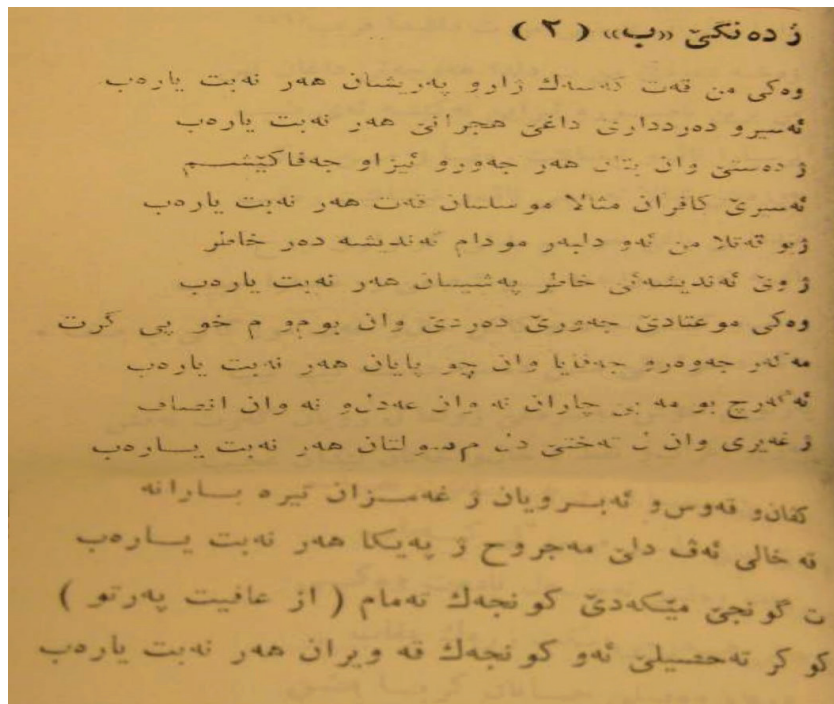 ژ دەنگێ «ب» ( ٢ )
وەکی من قەت کەسەك ژارو پەریشان هەر نەبت یارەب
ئەسیرو دەردداری داغێ هجرانێ هەر نەبت یارەب
ژ دەستێ وان بتان هەر جەورو ئیزاو جەفاکێشم
ئەسرێ کافران مثالا موسلمان قەت هەر نەبت یارەب
ژبو قەتلا من ئەو دلبەر مودام ئەندیشە دەر خاطر
ژ وێ ئەندیشەئی خاطر پەشیمان هەر نەبت یارەب
وەکی موعتادێ جەورێ دەردێ وان بوم و م خو پی گرت
مەگەر جەوەرو جەفایا وان چو پایان هەر نەبت یارەب
ئەگەرچ بو مە بێ چاران نە وان عەدل و نە وان انصاف
ژ غەیری وان ل تەختێ دل م سولتان هەر نەبت یارەب
کڤان و قەوس و ئەبرویان ژ غەمزان تیرە بارانە
قە خالی ئەڤ دلێ مەجروح ژ پەیکا هەر نەبت یارەب
ت گونجێ مێکەدێ کونجەك تەمام ( از عافیت پەرتو )
کو کر تەحسیلێ ئەو کونجەك قە ویران هەر نەبت یارەب